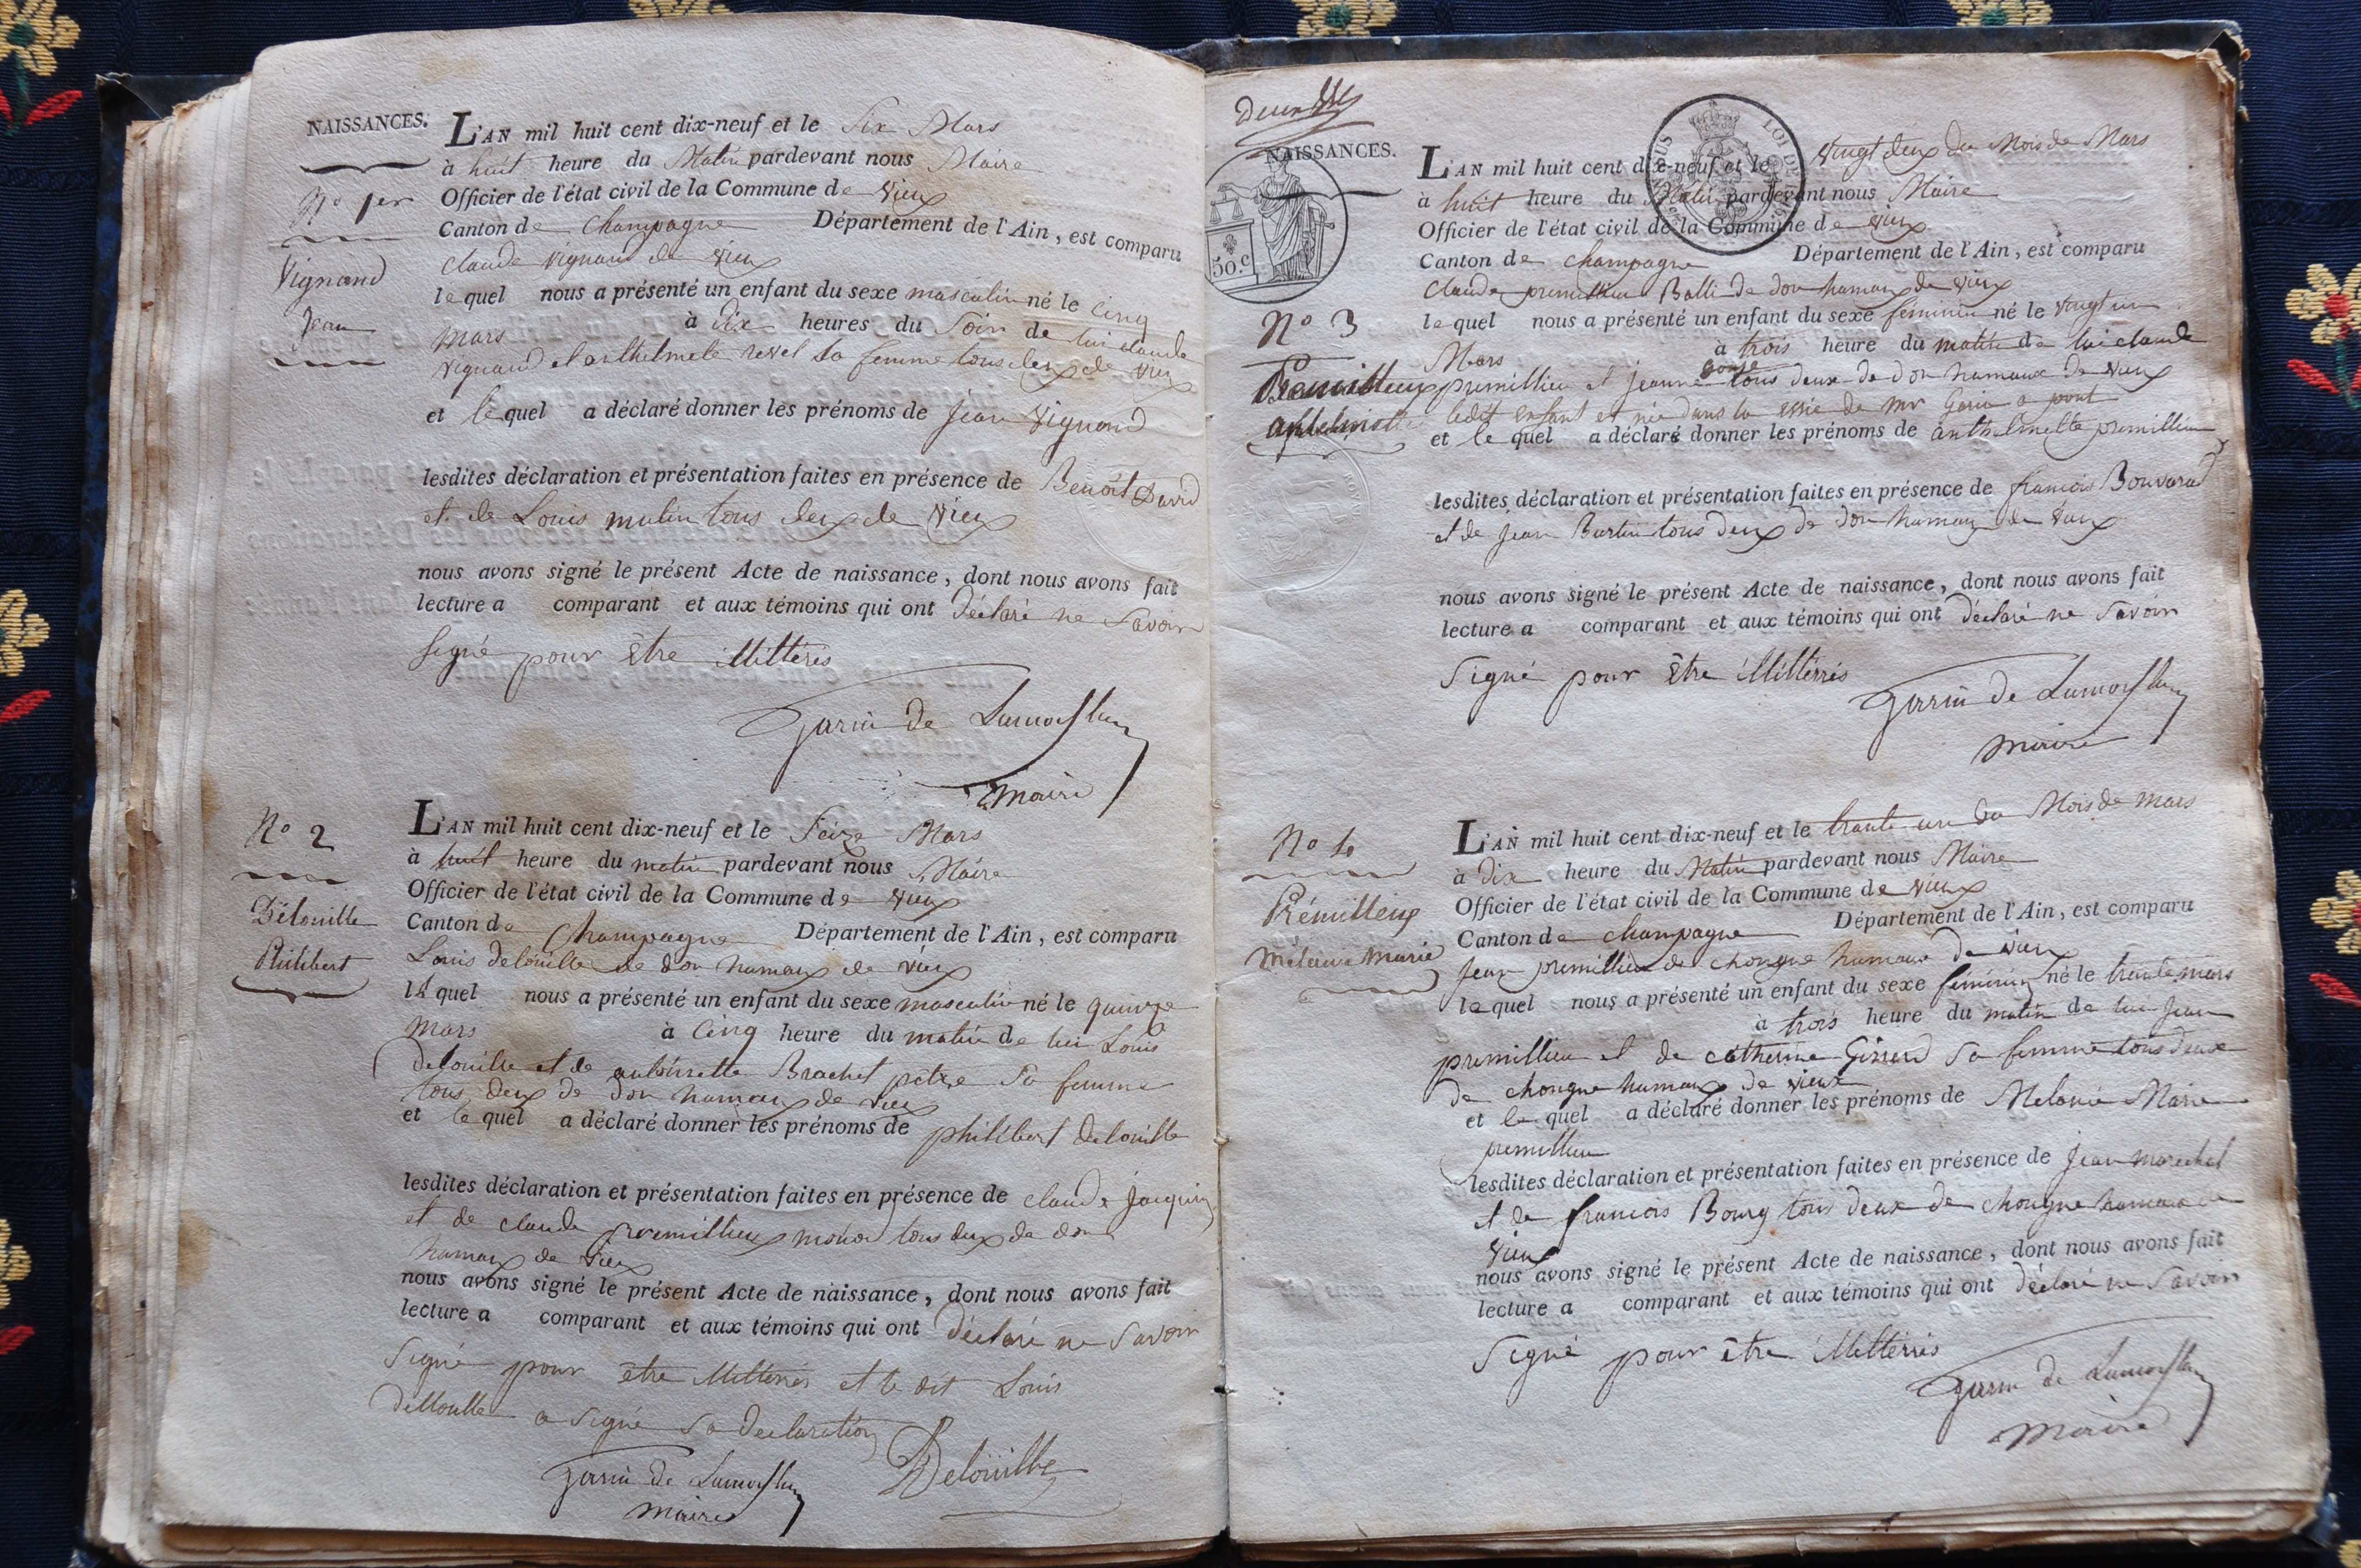 NAISSANCES.
L'AN mil huit cent dix-neuf et le Six Mars
à huit heure du Matin pardevant nous Maire
Officier de l'état civil de la Commune de vieux
Canton de Champagne Département de l'Ain, est comparu
claude vignand de vieux
le quel nous a présenté un enfant du sexe masculin né le cinq
mars à dix heures du Soir de lui claude
vignand et anthelmete revel sa femme tous deux de vieux
et le quel a déclaré donner les prénoms de Jean vignand
lesdites déclaration et présentation faites en présence de Benoit David
et de Louis mutin tous deux de vieux
nous avons signé le présent Acte de naissance, dont nous avons fait
lecture a comparant et aux témoins qui ont déclaré ne Savoir
Signé pour être illitterés
Garin de
Maire
N° 1er
Vignand
Jean
N° 2
Délouille
Philibert
L'AN mil huit cent dix-neuf et le Seize Mars
à huit heure du matin pardevant nous Maire
Officier de l'état civil de la Commune de vieux
Canton de Champagne Département de l'Ain, est comparu
Louis delouille de don hamaux de vieux
le quel nous a présenté un enfant du sexe masculin né le quinze
mars à Cinq heure du matin de lui Louis
delouille et de antoinette Brachet sa femme
tous deux de don hamaux de vieux
et le quel a déclaré donner les prénoms de philibert delouille
lesdites déclaration et présentation faites en présence de claude Jacquin
et de claude premillieux tous deux de don
hamaux de vieux
nous avons signé le présent Acte de naissance, dont nous avons fait
lecture a comparant et aux témoins qui ont déclaré ne Savoir
Signé pour être illitterés et le dit Louis
delouille a Signé Sa declaration
Garin de
Maire
Delouille
NAISSANCES.
50.c
LOI DE
L'AN mil huit cent dix-neuf et le vingt deux du Mois de Mars
à huit heure du Matin pardevant nous Maire
Officier de l'état civil de la Commune de vieux
Canton de Champagne Département de l'Ain, est comparu
claude premillieu Balli de don hamaux de vieux
le quel nous a présenté un enfant du sexe feminin né le vingt un
Mars à trois heure du matin de lui claude
premillieu et jeanne tous deux de don hamaux de vieux
ledit enfant est née dans la de mr Garin a pont
et le quel a déclaré donner les prénoms de anthelmette premillieu
lesdites déclaration et présentation faites en présence de francois Bouvard
et de Jean Burtin tous deux de don hamaux de vieux
nous avons signé le présent Acte de naissance, dont nous avons fait
lecture a comparant et aux témoins qui ont déclaré ne Savoir
Signé pour être illitterés
Garin de
maire
N° 3
Premillieux
anthelmette
N° 4
Prémillieux
Mélanie Marie
L'AN mil huit cent dix-neuf et le trante un du Mois de mars
à dix heure du Matin pardevant nous Maire
Officier de l'état civil de la Commune de vieux
Canton de Champagne Département de l'Ain, est comparu
Jean premillieu de chongne hamaux de vieux
le quel nous a présenté un enfant du sexe feminin né le trante mars
à trois heure du matin de lui Jean
premillieu et de catherine Girerd Sa femme tous deux
de chongne hamaux de vieux
et le quel a déclaré donner les prénoms de Melanie Marie
premillieu
lesdites déclaration et présentation faites en présence de Jean marechal
et de francois Bourg tous deux de chongne hamaux de
vieux
nous avons signé le présent Acte de naissance, dont nous avons fait
lecture a comparant et aux témoins qui ont déclaré ne Savoir
Signé pour être illitterés
Garin de
maire